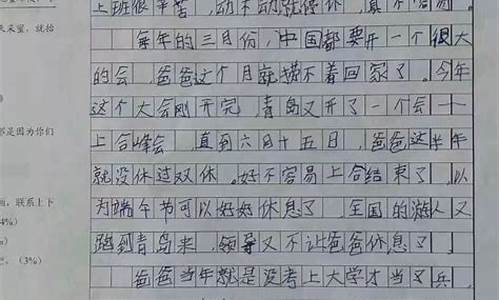 上班很辛苦，动不动就停休，真不容易。
每年的三月份，中国都要开一个很大
的会，爸爸这个月就捞不着回家了。今年
这个大会刚开完，青岛又开了一个会——
上合峰会，直到六月十五日，爸爸这半年
就没休过双休。好不容易上合结束了，以
为端午节可以好好休息了，全国的游人又
跑到青岛来，领导又不让爸爸休息了。
爸爸当年就是没考上大学才当了兵，
天来望，就抬
都是因为你们
联系上下
4%）
（3%）